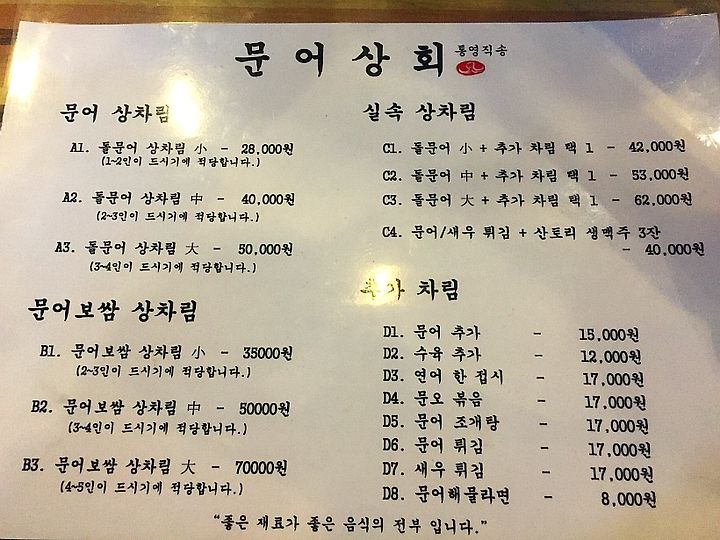 문어상회 통영직송
문어 상차림
A1. 돌문어 상차림 小 - 28,000원
(1~2인이 드시기에 적당합니다.)
A2. 돌문어 상차림 中 - 40,000원
(2~3인이 드시기에 적당합니다.)
A3. 돌문어 상차림 大 - 50,000원
(3~4인이 드시기에 적당합니다.)
문어보쌈 상차림
B1. 문어보쌈 상차림 小 - 35000원
(2~3인이 드시기에 적당합니다.)
B2. 문어보쌈 상차림 中 - 50000원
(3~4인이 드시기에 적당합니다.)
B3. 문어보쌈 상차림 大 - 70000원
(4~5인이 드시기에 적당합니다.)
실속 상차림
C1. 돌문어 小 + 추가 차림 택 1 - 42,000원
C2. 돌문어 中 + 추가 차림 택 1 - 53,000원
C3. 돌문어 大 + 추가 차림 택 1 - 62,000원
C4. 문어/새우 튀김 + 산토리 생맥주 3잔
- 40,000원
추가 차림
D1. 문어 추가 - 15,000원
D2. 수육 추가 - 12,000원
D3. 연어 한 접시 - 17,000원
D4. 문오 볶음 - 17,000원
D5. 문어 조개탕 - 17,000원
D6. 문어 튀김 - 17,000원
D7. 새우 튀김 - 17,000원
D8. 문어해물라면 - 8,000원
"좋은 재료가 좋은 음식의 전부 입니다."